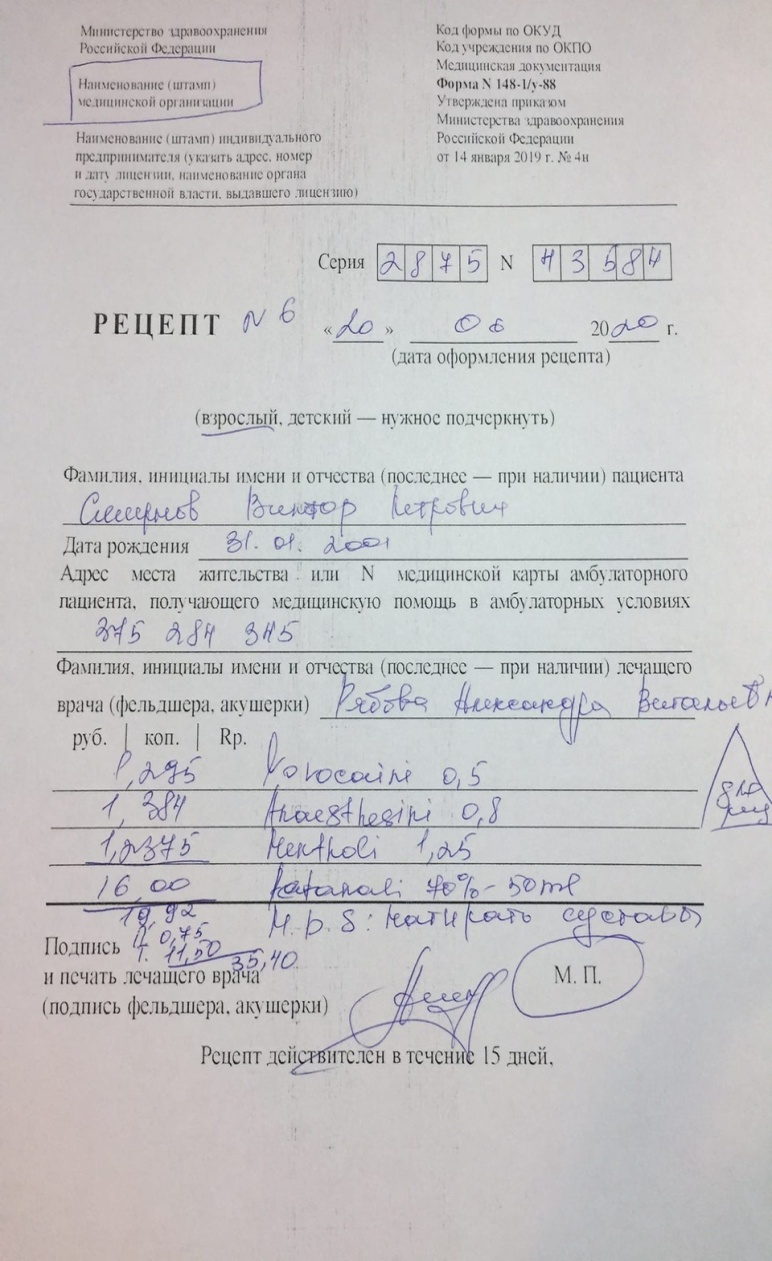 Министерство здравоохранения
Российской Федерации
Наименование (штамп)
медицинской организации
Наименование (штамп) индивидуального
предпринимателя (указать адрес, номер
и дату лицензии, наименование органа
государственной власти, выдавшего лицензию)
Код формы по ОКУД
Код учреждения по ОКПО
Медицинская документация
Форма N 148-1/у-88
Утверждена приказом
Министерства здравоохранения
Российской Федерации
от 14 января 2019 г. № 4н
Серия 2875 N 43584
РЕЦЕПТ N 6 «20» 06 2020 г.
(дата оформления рецепта)
(взрослый, детский — нужное подчеркнуть)
Фамилия, инициалы имени и отчества (последнее — при наличии) пациента
Смирнов Виктор Петрович
Дата рождения 31.01.2001
Адрес места жительства или N медицинской карты амбулаторного
пациента, получающего медицинскую помощь в амбулаторных условиях
375 284 345
Фамилия, инициалы имени и отчества (последнее — при наличии) лечащего
врача (фельдшера, акушерки) Рябова Александра Витальевн
руб. | коп. | Rp.
1,295 Novocaini 0,5
1,384 Anaesthesini 0,8
1,2375 Mentholi 1,25
16,00 70% - 50ml
19,92 M.D.S: натирать суставы
для
Подпись 0,75
Т. 11,50
35,40
и печать лечащего врача
М. П.
(подпись фельдшера, акушерки)
Рецепт действителен в течение 15 дней,